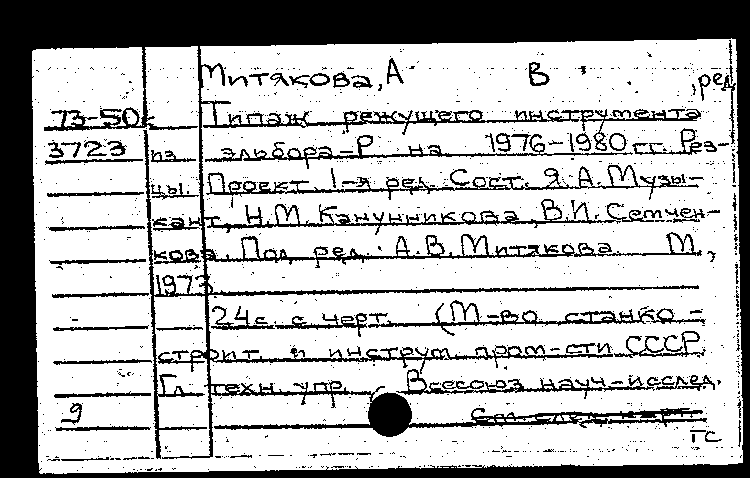 Митякова, А В , ред
73-50к Типаж режущего инструмента
3723 из эльбора-Р на 1976-1980 гг. Рез-
цы. Проект. 1-я ред. Сост. Я.А.Музы-
кант, Н.М.Канунникова, В.И.Сетчен-
кова. Под ред. А.В.Митякова М.,
1973.
24с. с черт. (М-во станко-
строит. и инструм. пром-сти СССР.
Гл. техн. упр. Всесоюз науч-исслед.
9 См. след. карт.
ГС